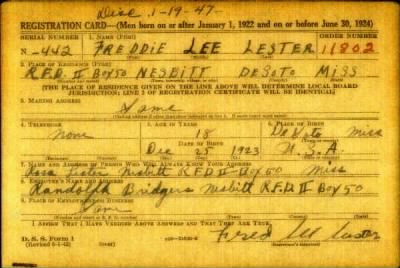 Disc. 1-19-47-
REGISTRATION CARD—(Men born on or after January 1, 1922 and on or before June 30, 1924)
SERIAL NUMBER 1. NAME (Print) ORDER NUMBER
N-442 FREDDIE LEE LESTER 11802
2. PLACE OF RESIDENCE (Print)
R.F.D. II BOX 50 NESBITT DESOTO MISS
[THE PLACE OF RESIDENCE GIVEN ON THE LINE ABOVE WILL DETERMINE LOCAL BOARD
JURISDICTION; LINE 2 OF REGISTRATION CERTIFICATE WILL BE IDENTICAL]
3. MAILING ADDRESS
Same
4. TELEPHONE 5. AGE IN YEARS 6. PLACE OF BIRTH
none 18 DeSoto Miss
DATE OF BIRTH
Dec 25 1923 U.S.A.
7. NAME AND ADDRESS OF PERSON WHO WILL ALWAYS KNOW YOUR ADDRESS
Lester Nesbitt R.F.D. II Box 50 Miss
8. EMPLOYER'S NAME AND ADDRESS
Randolph Bridgers Nesbitt R.F.D. II Box 50
9. PLACE OF EMPLOYMENT OR BUSINESS
Same
I AFFIRM THAT I HAVE VERIFIED ABOVE ANSWERS AND THAT THEY ARE TRUE.
D. S. S. Form 1
(Revised 6-1-42)
Fred Lee Lester